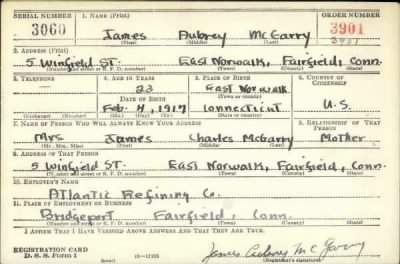 SERIAL NUMBER 1. NAME (Print) ORDER NUMBER
3060 James Aubrey McGarry 3901
(First) (Middle) (Last)
2. ADDRESS (Print)
5 Winfield St. East Norwalk, Fairfield, Conn.
(Number and street or R. F. D. number) (Town) (County) (State)
3. TELEPHONE 4. AGE IN YEARS 5. PLACE OF BIRTH 6. COUNTRY OF CITIZENSHIP
23 East Norwalk
DATE OF BIRTH (Town or county)
Feb. 1917 Connecticut U.S.
(Exchange) (Number) (Mo.) (Day) (Yr.) (State or country)
7. NAME OF PERSON WHO WILL ALWAYS KNOW YOUR ADDRESS 8. RELATIONSHIP OF THAT PERSON
Mrs James Charles McGarry Mother
(Mr., Mrs., Miss) (First) (Middle) (Last)
9. ADDRESS OF THAT PERSON
5 Winfield St. East Norwalk, Fairfield, Conn.
(Number and street or R. F. D. number) (Town) (County) (State)
10. EMPLOYER'S NAME
Atlantic Refining Co.
11. PLACE OF EMPLOYMENT OR BUSINESS
Bridgeport Fairfield, Conn.
(Number and street or R. F. D. number) (Town) (County) (State)
I AFFIRM THAT I HAVE VERIFIED ABOVE ANSWERS AND THAT THEY ARE TRUE.
REGISTRATION CARD
D. S. S. Form 1 (over) James Aubrey McGarry